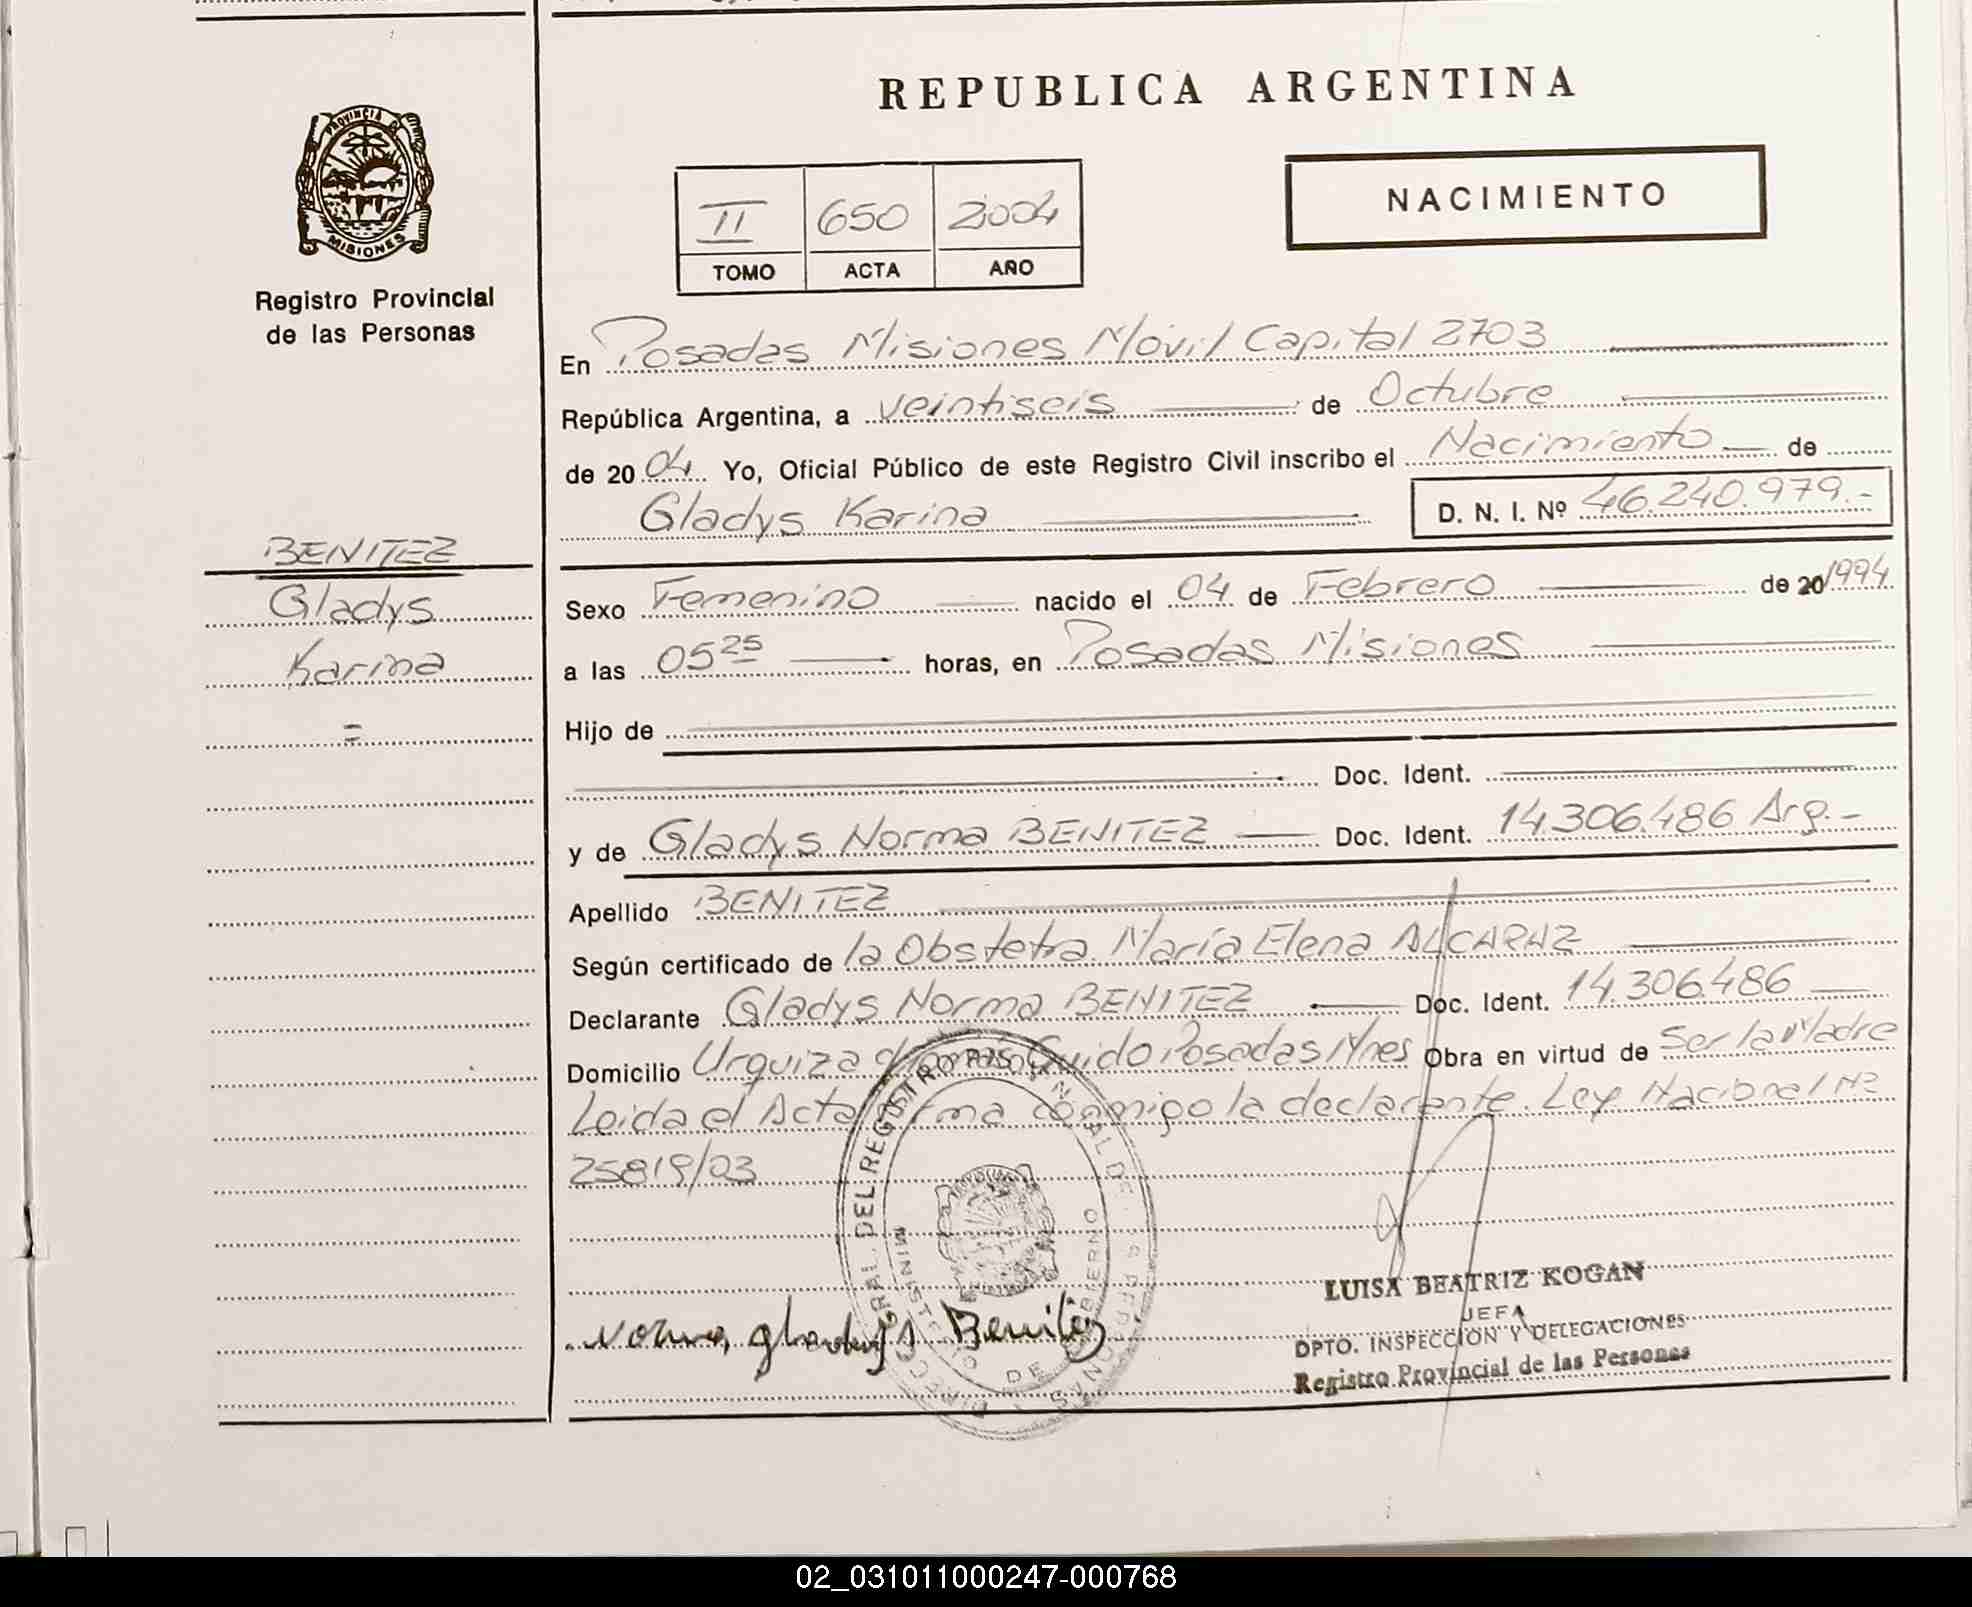 REPUBLICA ARGENTINA
PROVINCIA DE
MISIONES
Registro Provincial
de las Personas
II 650 2004
TOMO ACTA AÑO
NACIMIENTO
En Posadas Misiones Móvil Capital 2703
República Argentina, a veintiseis de Octubre
de 2004 Yo, Oficial Público de este Registro Civil inscribo el Nacimiento de
Gladys Karina D. N. I. Nº 46.240.979.-
BENITEZ
Gladys
Karina
=
Sexo Femenino nacido el 04 de Febrero de 20 1994.
a las 05 25 horas, en Posadas Misiones
Hijo de
Doc. Ident.
y de Gladys Norma BENITEZ Doc. Ident. 14.306.486 Arg.-
Apellido BENITEZ
Según certificado de la Obstetra. María Elena ALCARAZ
Declarante Gladys Norma BENITEZ Doc. Ident. 14.306.486
Domicilio Urquiza Guido Posadas Mnes Obra en virtud de Ser la Madre
Leida el Acta firma conmigo la declarante. Ley Nacional Nº
25819/03
DEL REGISTRO PROVINCIAL DE LAS PERSONAS
MINISTERIO DE GOBIERNO
Norma, gladys Benitez
LUISA BEATRIZ KOGAN
JEFA
DPTO. INSPECCION Y DELEGACIONES
Registro Provincial de las Personas
02_031011000247-000768